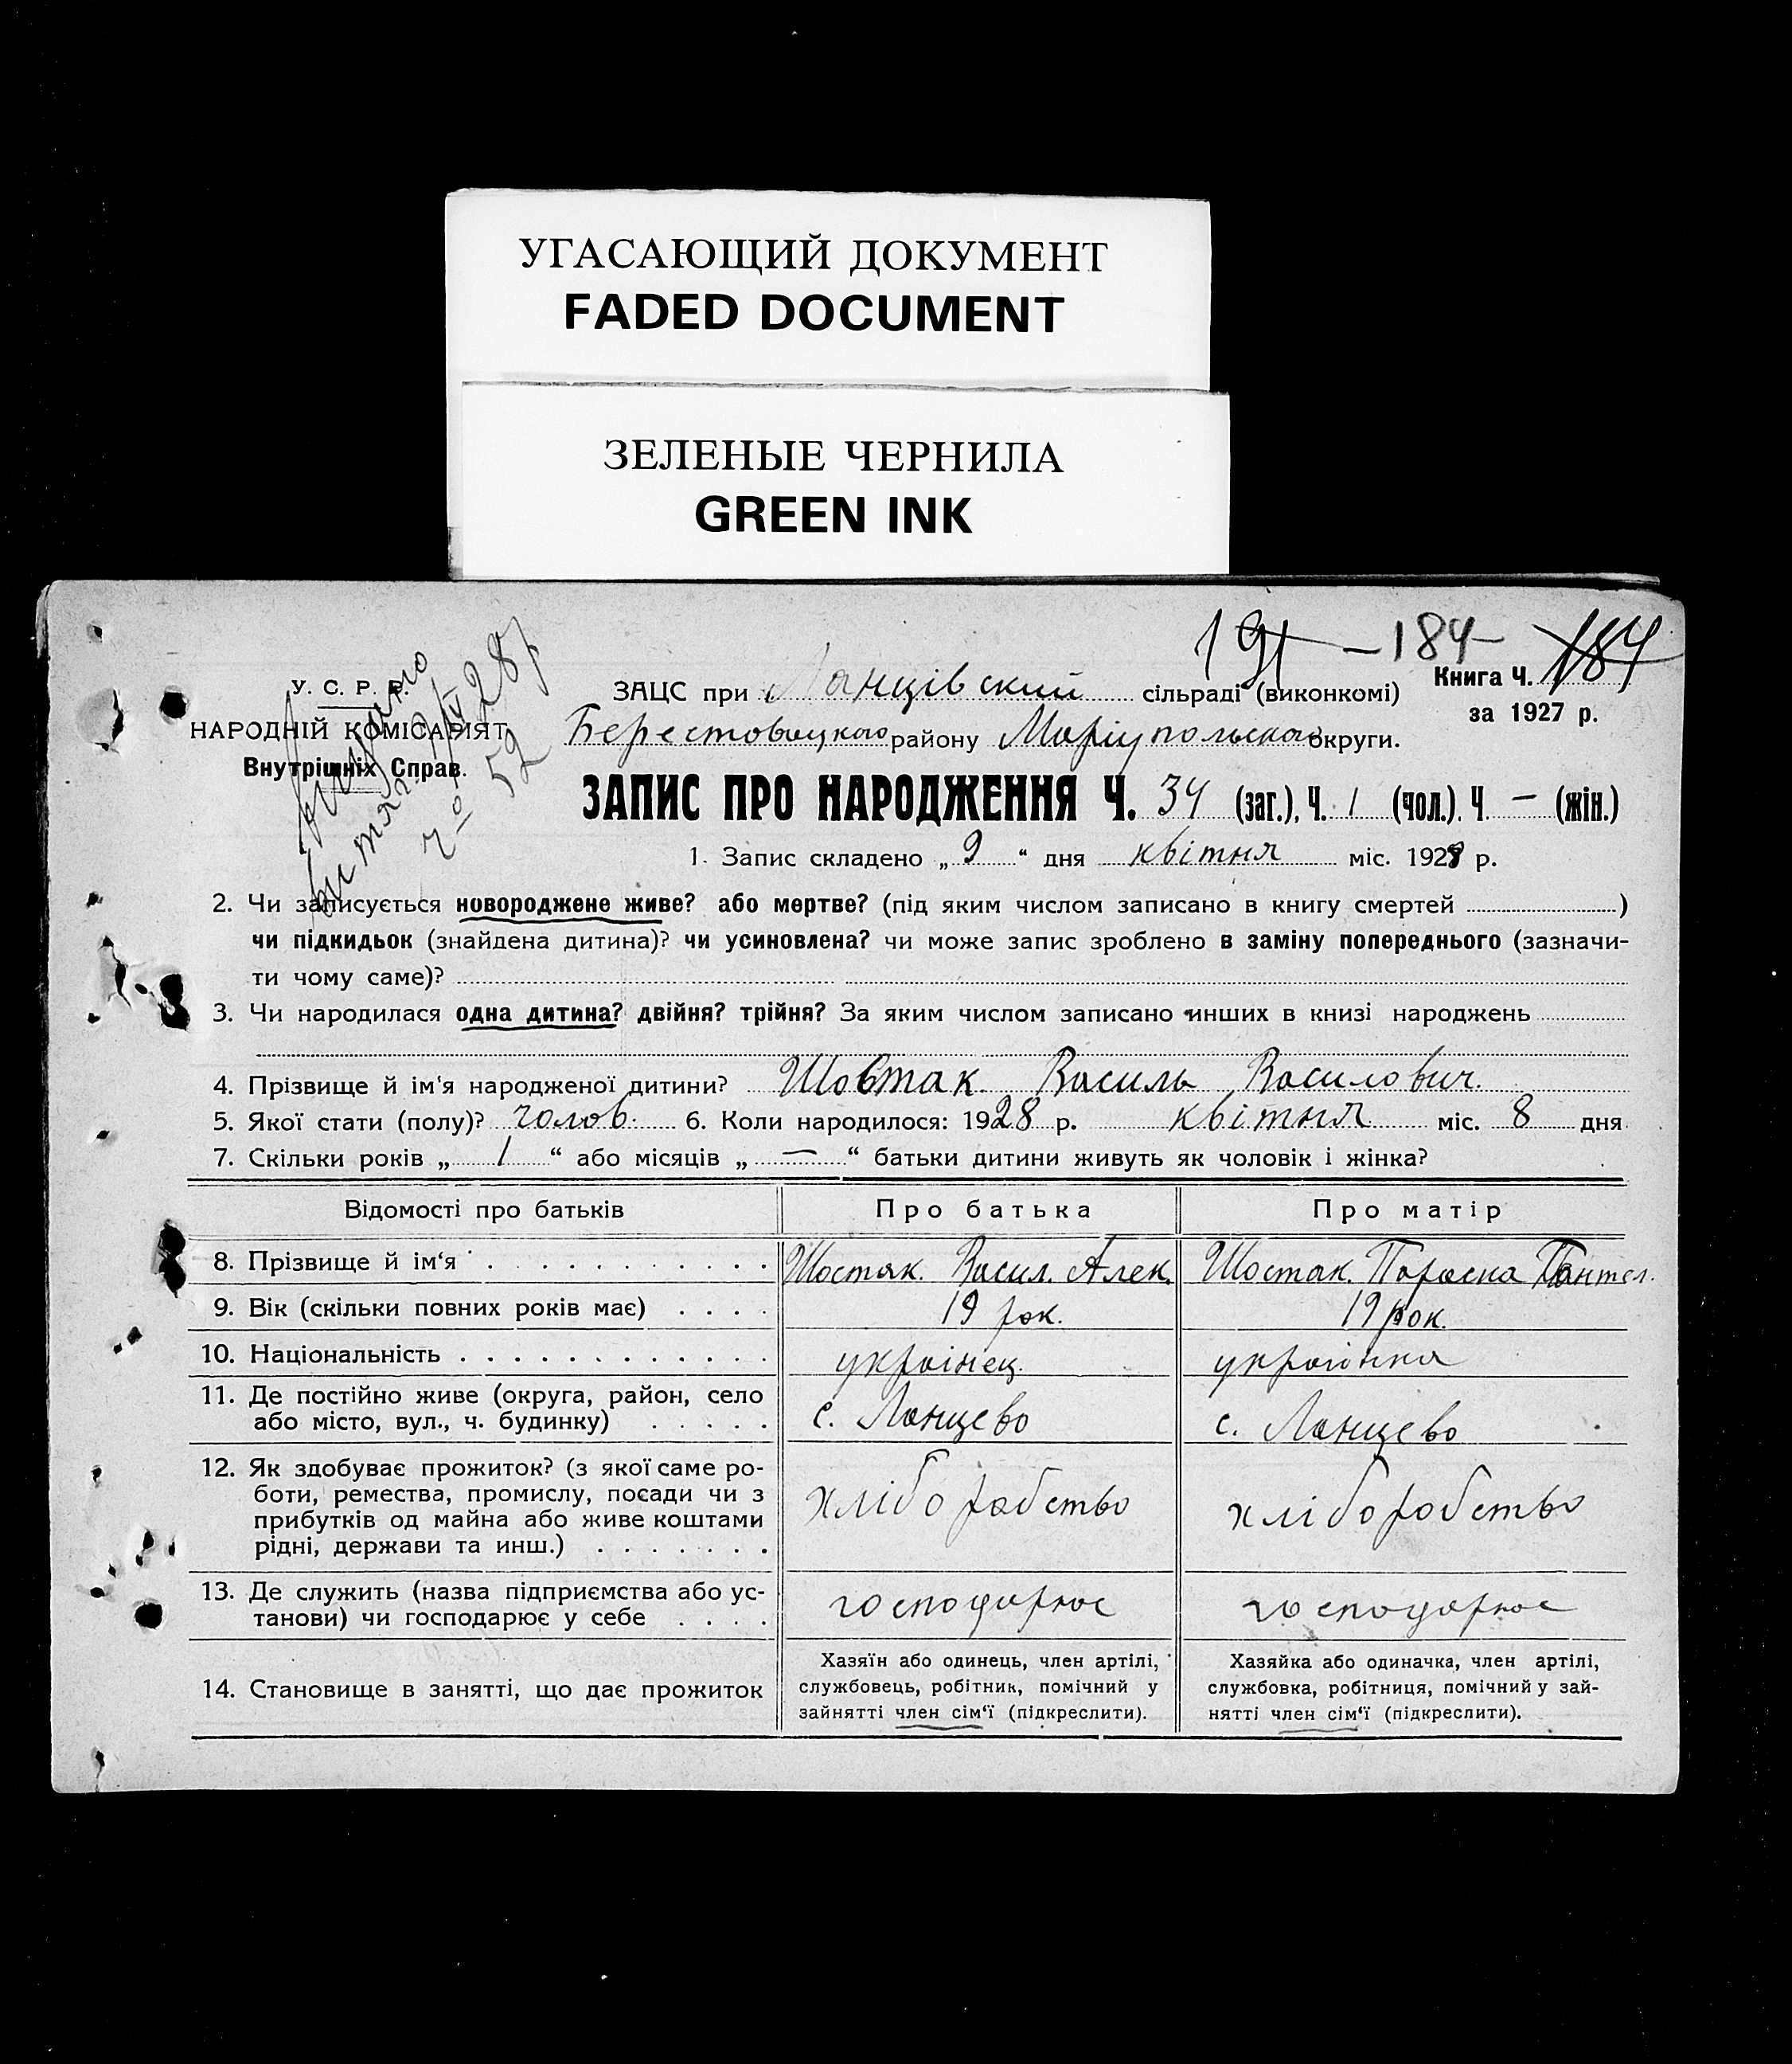 УГАСАЮЩИЙ ДОКУМЕНТ
FADED DOCUMENT
ЗЕЛЕНЫЕ ЧЕРНИЛА
GREEN INK
191 – 184 – 184
У. С. Р. Р.
НАРОДНІЙ КОМІСАРІЯТ
Внутрішніх Справ.
Видано
витяг 9/IV 28 р
ч° 52
Книга Ч.
за 1927 р.
ЗАЦС при Ланцівский сільраді (виконкомі)
Берестовицкого району Маріупольскої округи.
ЗАПИС ПРО НАРОДЖЕННЯ Ч. 34 (заг.), Ч. 1 (чол.). Ч. — (жін.)
1. Запис складено „ 9 “ дня квітня міс. 1928 р.
2. Чи записується новороджене живе? або мертве? (під яким числом записано в книгу смертей )
чи підкидьок (знайдена дитина)? чи усиновлена? чи може запис зроблено в заміну попереднього (зазначи-
ти чому саме)?
3. Чи народилася одна дитина? двійня? трійня? За яким числом записано инших в книзі народжень
4. Прізвище й ім'я народженої дитини? Шостак Василь Василович.
5. Якої стати (полу)? чолов. 6. Коли народилося: 1928 р. квітня міс. 8 дня
7. Скільки років „ 1 “ або місяців „ — “ батьки дитини живуть як чоловік і жінка?
Відомості про батьків Про батька Про матір
8. Прізвище й ім‘я Шостак. Васил. Алек. Шостак. Параска Пантел.
9. Вік (скільки повних років має) 19 рок. 19 рок.
10. Національність українец. українка
11. Де постійно живе (округа, район, село
або місто, вул., ч. будинку) с. Ланцево с. Ланцево
12. Як здобуває прожиток? (з якої саме ро-
боти, ремества, промислу, посади чи з
прибутків од майна або живе коштами
рідні, держави та инш.) хліборобство хліборобство
13. Де служить (назва підприємства або ус-
танови) чи господарює у себе господарює господарює
14. Становище в занятті, що дає прожиток
Хазяїн або одинець, член артілі,
службовець, робітник, помічний у
зайнятті член сім‘ї (підкреслити).
Хазяйка або одиначка, член артілі,
службовка, робітниця, помічний у зай-
нятті член сім‘ї (підкреслити).